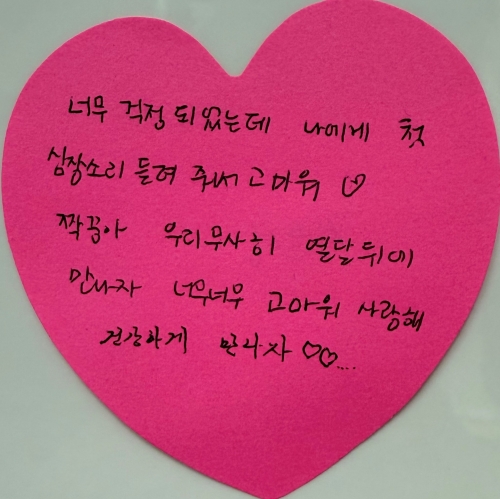 너무 걱정 되었는데 나에게 첫
심장소리 들려 줘서 고마워 ♡
짝꿍아 우리무사히 열달뒤에
만나자 너무너무 고마워 사랑해
건강하게 만나자 ♡♡....